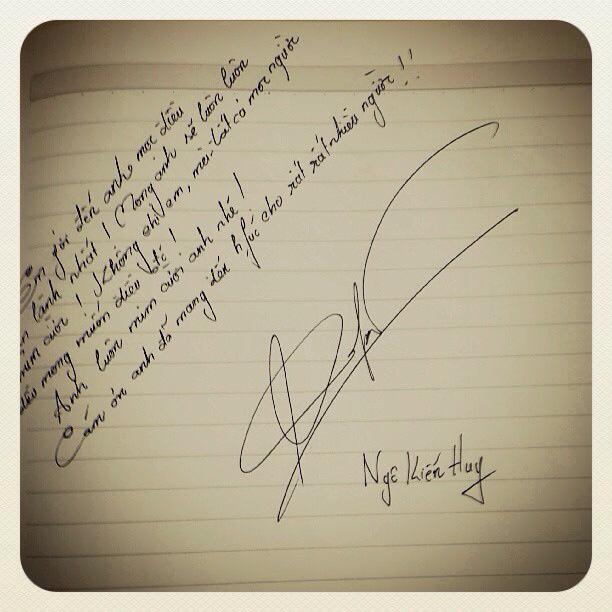 Em gửi đến anh mọi điều
an lành nhất ! Mong anh sẽ luôn luôn
mỉm cười ! Không chỉ em, mà tất cả mọi người
đều mong muốn điều đó !
Anh luôn mỉm cười anh nhé !
Cám ơn anh đã mang đến h/phúc cho rất rất nhiều người !!
Ngô Kiến Huy